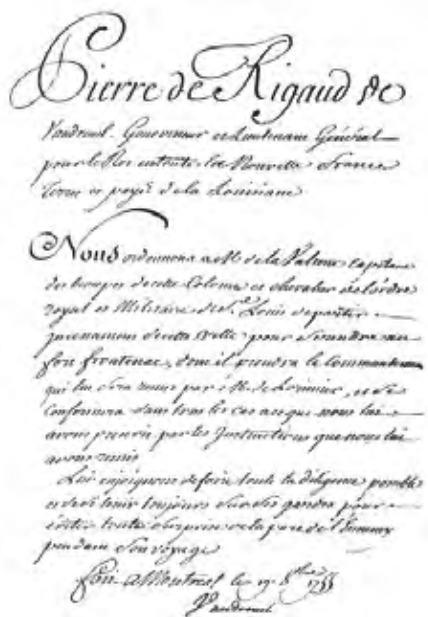 Pierre de Rigaud de
Vaudreuil Gouverneur et Lieutenant Général
pour le Roy en toute la Nouvelle France
Terres et pays de la Louisiane
Nous ordonnons a M. de la Valtrie Capitaine
des troupes de cette Colonie et chevalier de l'ordre
royal et Militaire de St Louis de partir
incessament de cette Ville pour se rendre au
fort frontenac, dont il prendra le Commandement
qui lui sera remis par M. de Lorimier, et se
Conformera dans tous les cas a ce que nous lui
avons prescrit par les Instructions que nous lui
avons remis
Lui enjoignons de faire toute la diligence possible
et de se tenir toujours sur ses gardes pour
eviter toute surprise de la part de l'Ennemy
pendant son voyage
fait a Montreal le 19 8bre 1755
Vaudreuil